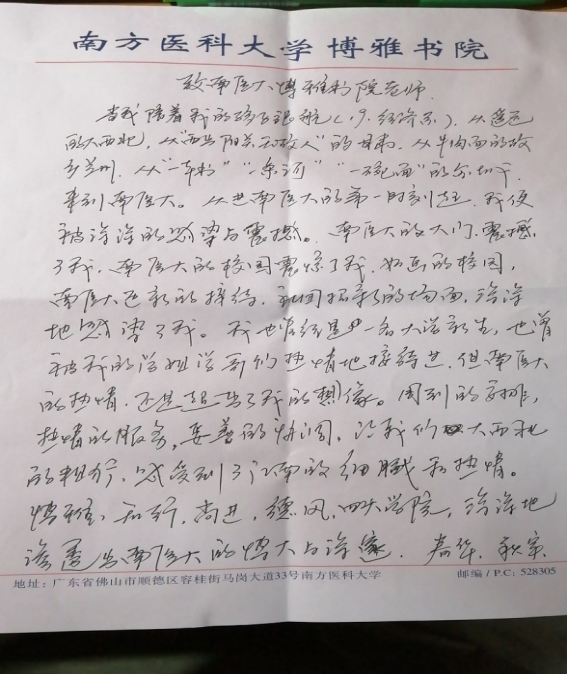 南方医科大学博雅书院
致南医大博雅书院老师
当我陪着我的孩子银航(19.经济系),从遥远
的大西北,从“西出阳关无故人”的甘肃,从牛肉面的故
乡兰州,从“一本书”“一条河”“一碗面”的
来到南医大。从进南医大的第一时刻起,我便
被深深的感染与震撼。南医大的大门震撼
了我,南医大的校园震惊了我,如画的校园,
南医大迎新的接待,社团招新的场面,深深
地感染了我。我也曾经是一名大学新生,也曾
被我的学姐学哥们热情地接待过,但南医大
的热情,还是超出了我的想像。周到的安排,
热情的服务,妥善的协调,让我们大西北
的粗犷,感受到了江南的细腻和热情。
博雅、知行,尚进,德风,四大学院,深深地
渗透出南医大的博大与深邃.
地址:广东省佛山市顺德区容桂街马岗大道33号南方医科大学 邮编/P.C: 528305